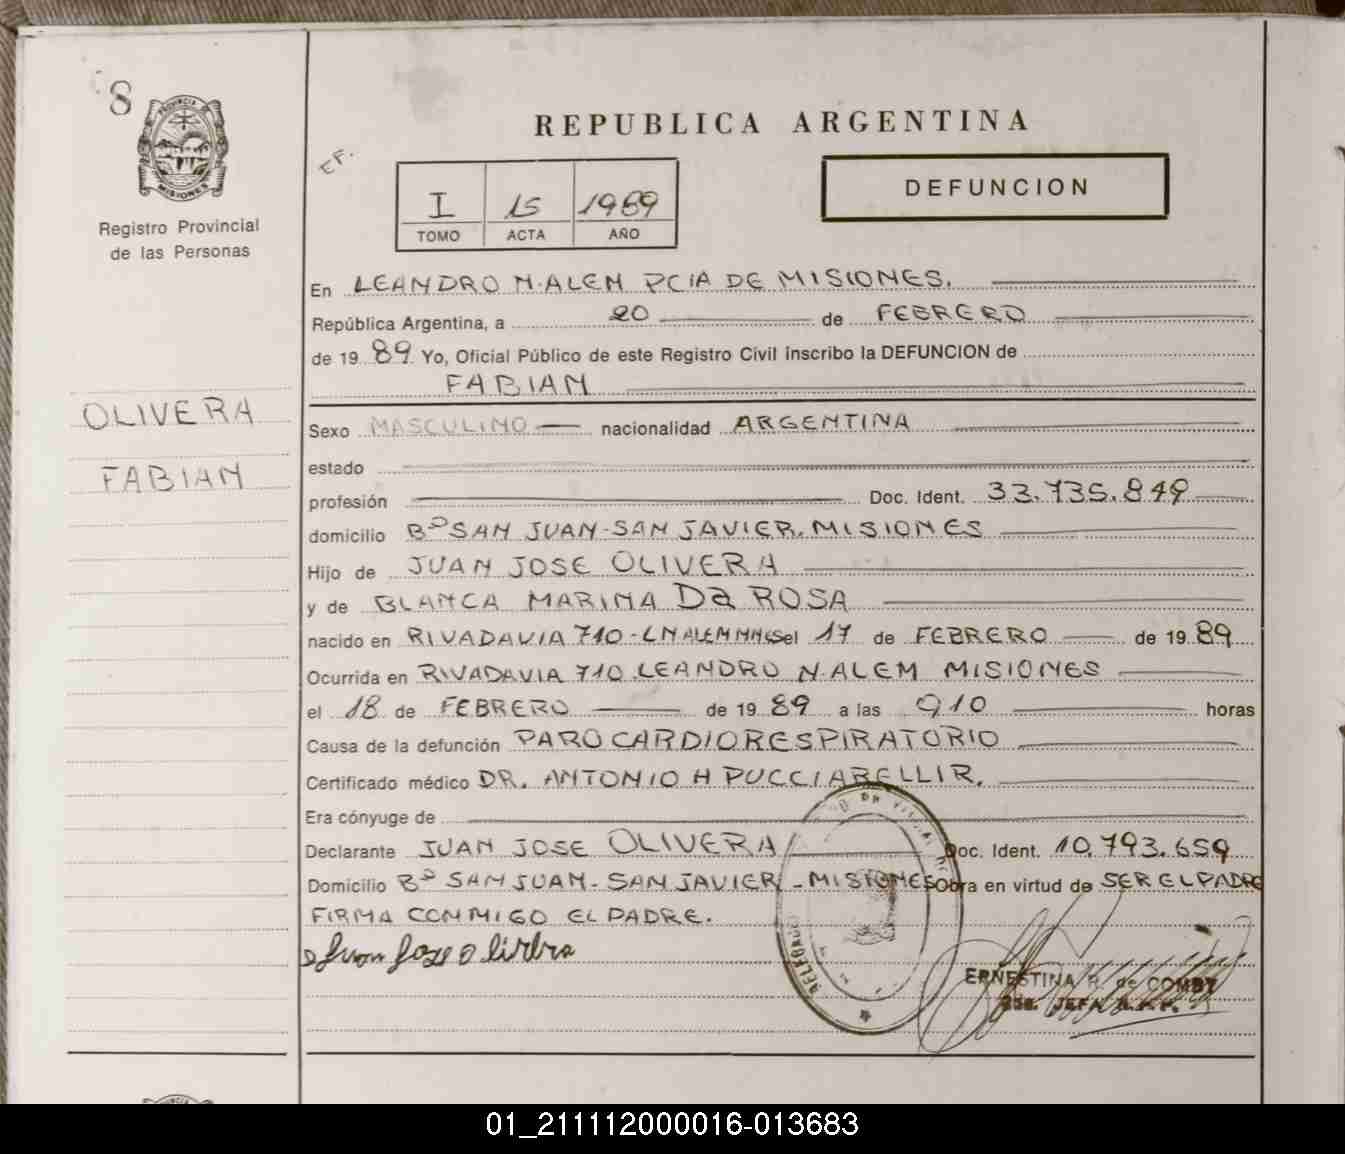 8
PROVINCIA
MISIONES
Registro Provincial
de las Personas
OLIVERA
FABIAN
REPUBLICA ARGENTINA
EF.
I 15 1989
TOMO ACTA AÑO
DEFUNCION
En LEANDRO N. ALEM PCIA DE MISIONES.
República Argentina, a 20 de FEBRERO
de 1989 Yo, Oficial Público de este Registro Civil inscribo la DEFUNCION de
FABIAN
Sexo MASCULINO nacionalidad ARGENTINA
estado
profesión Doc. Ident. 33.735.849
domicilio Bº SAN JUAN-SAN JAVIER. MISIONES
Hijo de JUAN JOSE OLIVERA
y de BLANCA MARINA Da ROSA
nacido en RIVADAVIA 710 - L N ALEM Mnes el 17 de FEBRERO de 1989
Ocurrida en RIVADAVIA 710. LEANDRO N. ALEM MISIONES
el 18 de FEBRERO de 1989 a las 910 horas
Causa de la defunción PARO CARDIORESPIRATORIO
Certificado médico DR. ANTONIO H PUCCIARELLI R.
Era cónyuge de
Declarante JUAN JOSE OLIVERA Doc. Ident. 10.793.659
Domicilio Bº SAN JUAN - SAN JAVIER - MISIONES Obra en virtud de SER EL PADRE
FIRMA CONMIGO EL PADRE.
Juan Jose Olivera
ERNESTINA R. de COMBY
JEFA
01_211112000016-013683